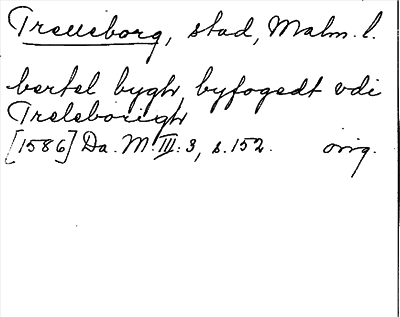 Trelleborg, stad, Malm. l.
bertel bygh, byfogedt vdi
Treleborigh
[1586] Da. M. III: 3, s. 152. orig.